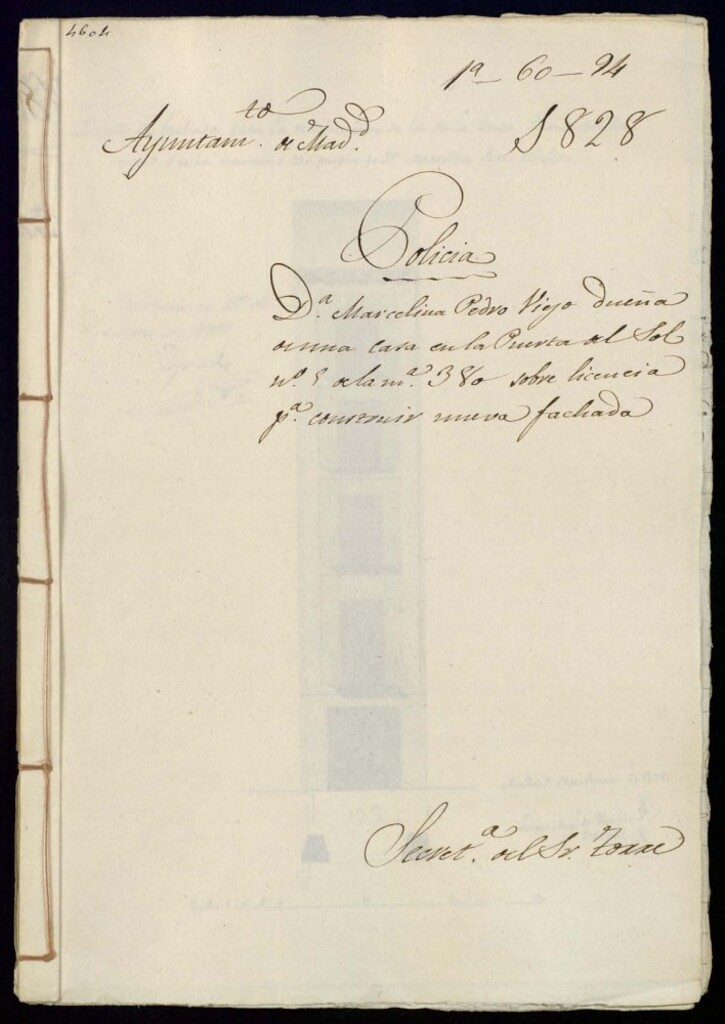 4604
1ª - 60 - 94
Ayuntam.to de Mad.d
1828
Policia
D.ª Marcelina Pedro Viejo dueña
de una casa en la Puerta del Sol
n.º 5 de la m.ª 380 sobre licencia
p.ª construir nueva fachada
Secret.ª del Sr. Torre